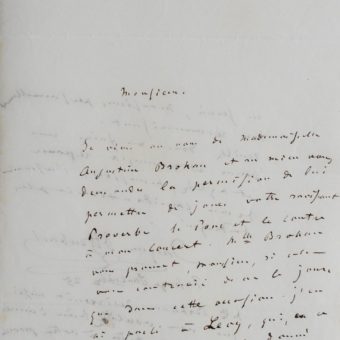 Monsieur
Je viens au nom de Mademoiselle
Augustine Brohan et au mien vous
demander la permission de lui
permettre de jouer votre ravissant
Proverbe le Pour et le Contre
à mon Concert. Mlle Brohan
vous promet, Monsieur, si cela
vous de ne le jouer
que dans cette occasion. J'en
ai parlé à Leroy, qui, en ce